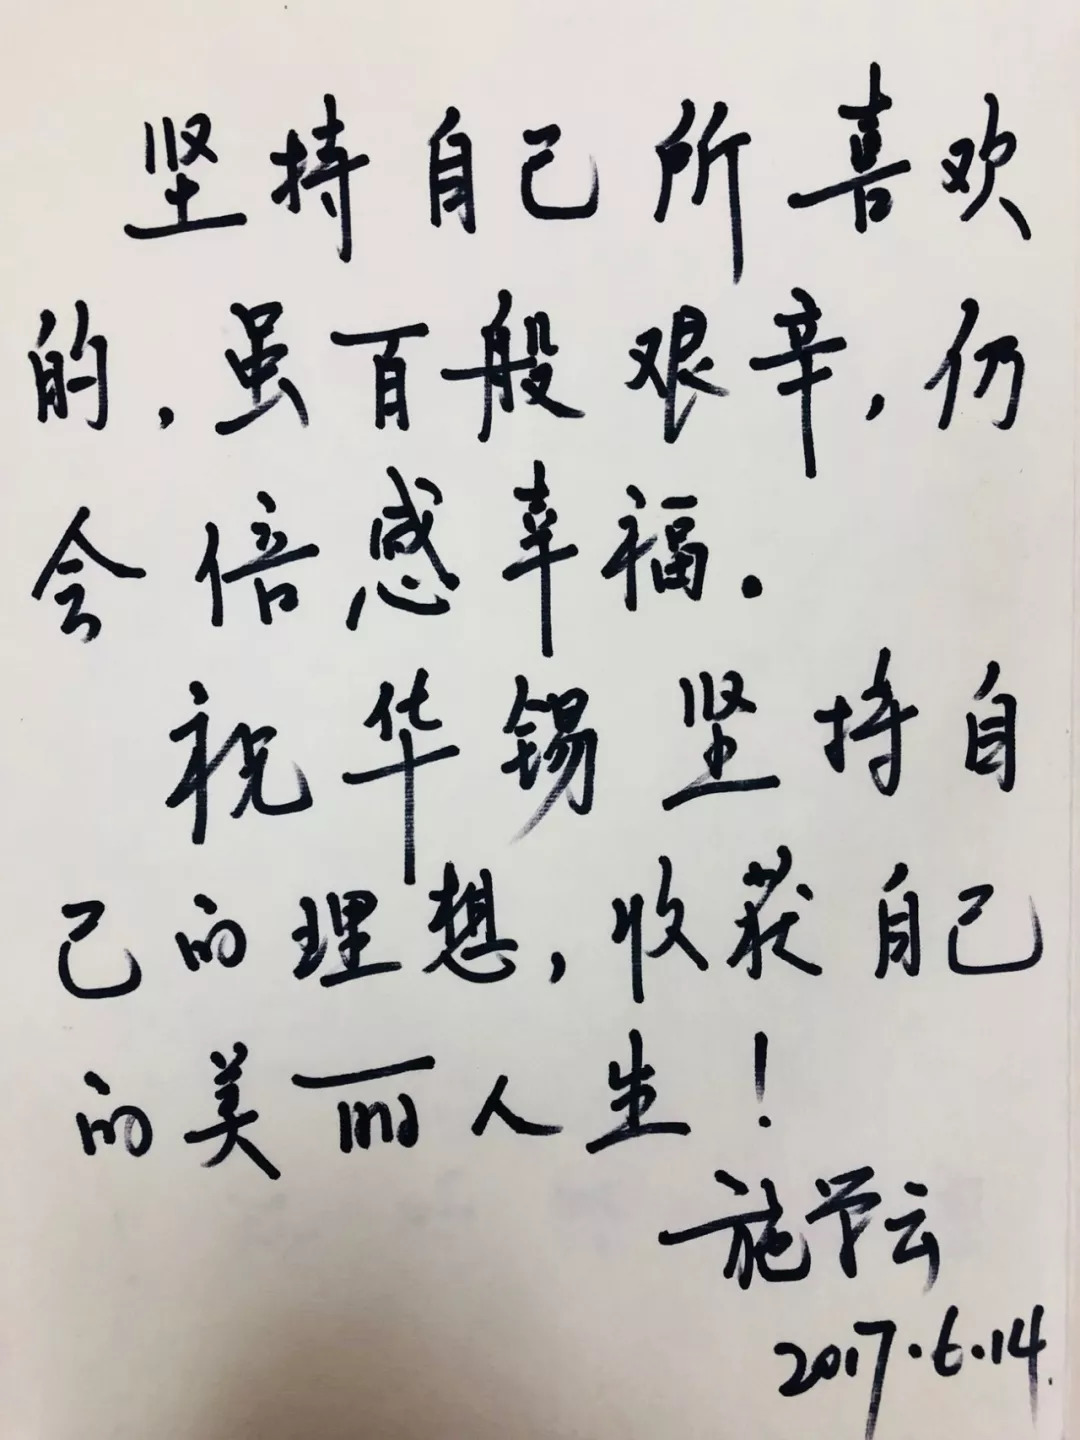 坚持自己所喜欢
的,虽百般艰辛,仍
会倍感幸福.
祝华锡坚持自
己的理想,收获自己
的美丽人生!
施学云
2017.6.14.